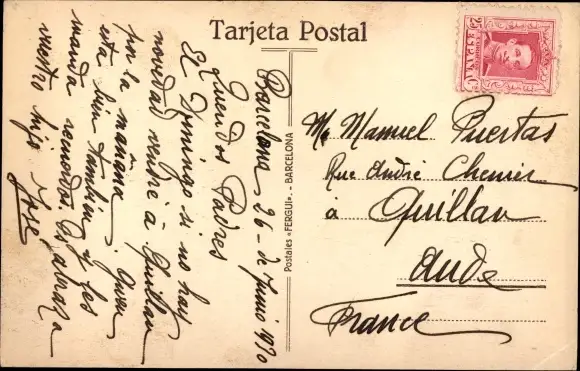 Tarjeta Postal
Barcelona 26 - de Junio 1930
Queridos Padres
El Domingo si no hay
novedad vendré à Quillan
por la mañana. Quen
esta bien tambien y les
manda recuerdos os abraza
vuestro hijo José
Postales «FERGUI». - BARCELONA
25
Mr Manuel Puertas
Rue André Chenier
à Quillan
Aude
France